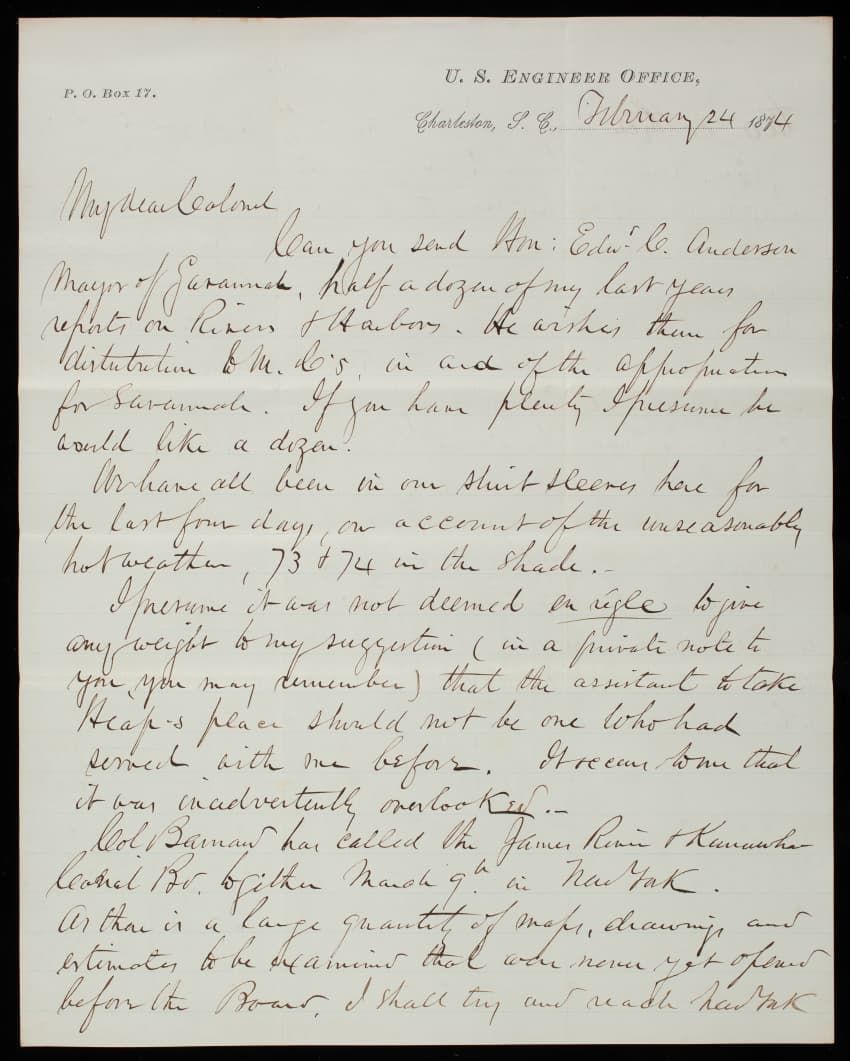 U. S. ENGINEER OFFICE,
P. O. Box 17.
Charleston, S. C., February 24 1874
My dear Colonel
Can you send Hon: Edwd. C. Anderson
Mayor of Savannah, half a dozen of my last years
reports on Rivers & Harbors. He wishes them for
distribution to M. C's, in aid of the appropriation
for Savannah. If you have plenty I presume he
would like a dozen.
We have all been in our shirt sleeves here for
the last four days, on account of the unseasonably
hot weather, 73 & 74 in the shade. -
I presume it was not deemed en régle to give
any weight to my suggestion (in a private note to
you, you may remember) that the assistant to take
Heap-s place should not be one who had
served with me before. It occurs to me that
it was inadvertently overlooked. -
Col Barnard has called the James River & Kanawha
Canal Bd. together March 9th. in New York.
As there is a large quantity of maps, drawings and
estimates to be examined that were never yet opened
before the Board, I shall try and reach New York